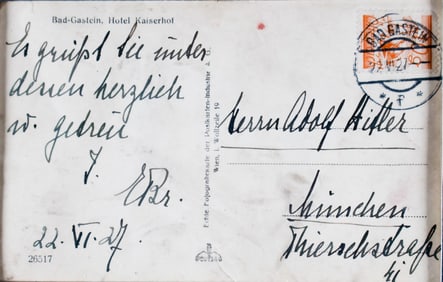 Bad-Gastein, Hotel Kaiserhof
Es grüßt Sie unter
dessen herzlich
u. getreu
J.
EBr.
22. VI. 27.
26517
Echte Photographiekarte der Postkarten-Industrie A. G.
Wien, I. Wollzeile 19
BAD GASTEIN
Herrn Adolf Hitler
München
Thierschstraße
41